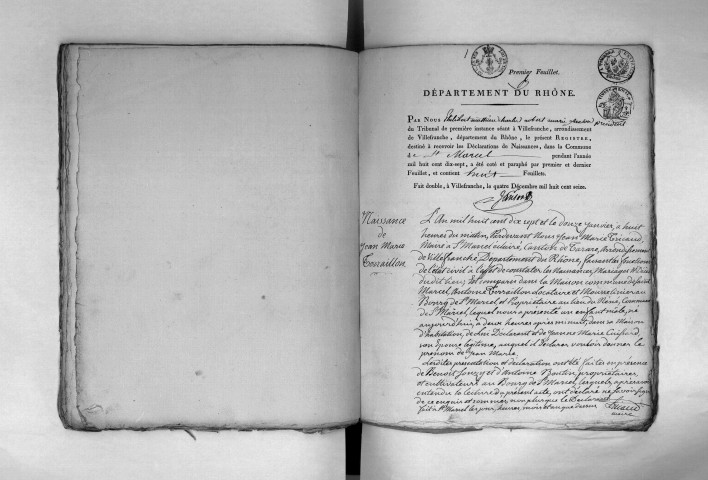 Premier Feuillet.
DÉPARTEMENT DU RHÔNE.
PAR NOUS président
du Tribunal de première instance séant à Villefranche, arrondissement
de Villefranche, département du Rhône, le présent REGISTRE,
destiné à recevoir les Déclarations de Naissances, dans la Commune
de St Marcel pendant l'année
mil huit cent dix-sept, a été coté et paraphé par premier et dernier
Feuillet, et contient huit Feuillets.
Fait double, à Villefranche, le quatre Décembre mil huit cent seize.
Naissance
de
Jean Marie
Torraillon
L'An mil huit cent dix sept et le Douze janvier, à huit
heures du matin, Pardevant Nous Jean Marie
Maire a St Marcel éclairé, Canton de Tarare, Arrondissement
de Villefranche, Departement du Rhône, faisant les fonctions
de l'état civil à l'effet de constater les Naissances, Mariages et Décès
dudit lieu, Est comparu dans la Maison commune de Saint
Marcel Antoine Torraillon Locataire et au
Bourg de St Marcel et Propriétaire au lieu du Commune
de St Marcel, lequel nous a présenté un enfant mâle, né
aujourd'hui, a deux heures après minuit, dans sa Maison
d'habitation, de lui Déclarant et de Jeanne Marie
son Epouse légitime, auquel il déclare vouloir donner le
prénom de Jean Marie.
Lesdites présentation et déclaration ont été faites en présence
de Benoit et d'Antoine propriétaires
et cultivateurs au Bourg de St Marcel, lesquels, après avoir
entendu lecture du présent acte, ont déclaré ne savoir signer
de ce enquis et sommés, non plus que le Déclarant
fait a St Marcel les jour, heure, mois et an que dessus
maire